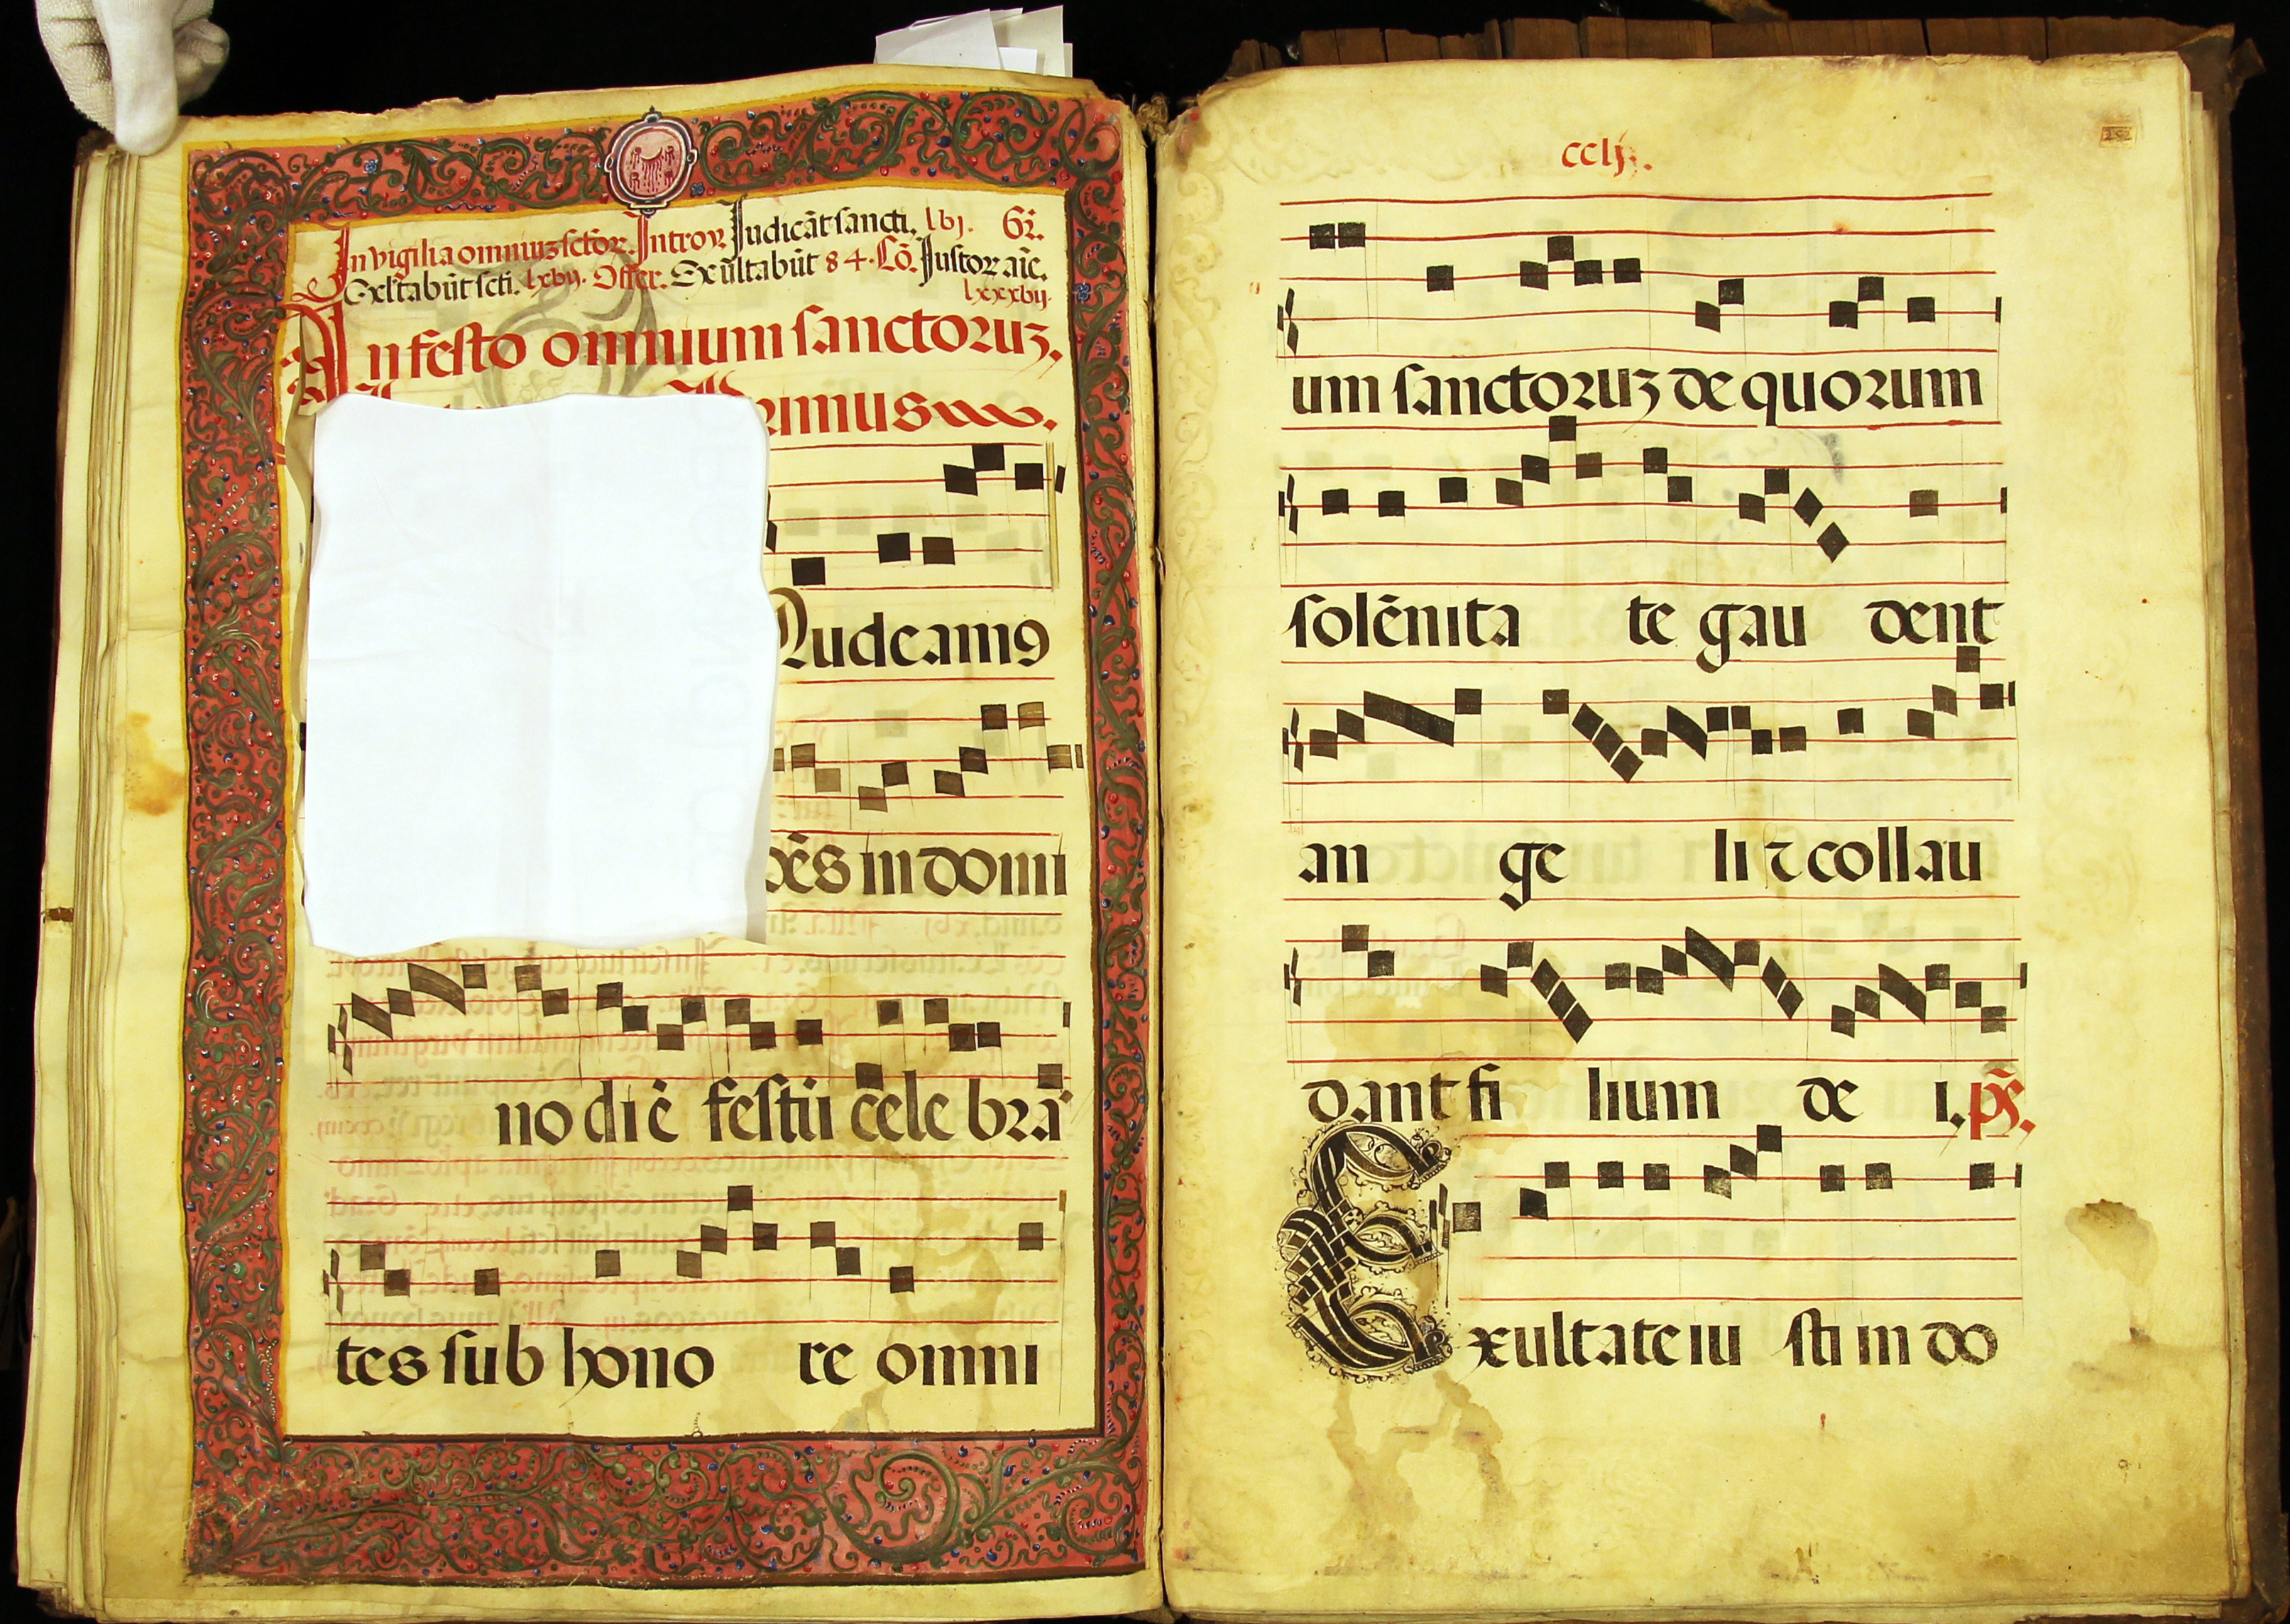 In vigilia omniuz sctõr. Introy. Iudicãt sancti. lvj. Gr̃.
Exltabũt scti. lxvij. Offer. Exultabũt 84. Cõ. Iustoꝝ aĩe.
lxxxvij.
In festo omnium sanctoruz.
rimus
audeamꝰ
oẽs in domi
no diẽ festũ cele brã
tes sub hono re omni
cclj.
um sanctoruz de quorum
solẽnita te gau dent
an ge li ⁊ collau
dant fi lium de i. p̃s.
Exultate iu sti in do